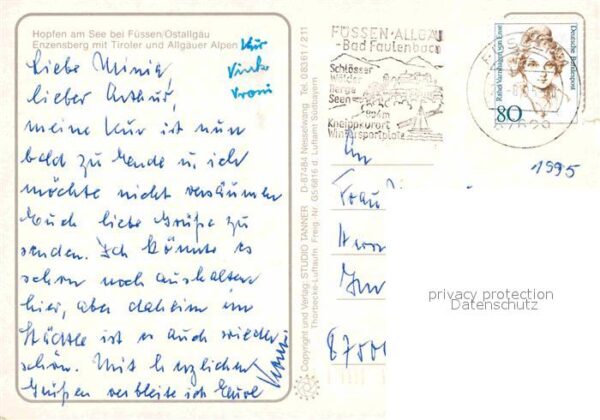 Hopfen am See bei Füssen/Ostallgäu
Enzensberg mit Tiroler und Allgäuer Alpen
Kur
Vroni
Liebe
lieber Arthur,
meine Kur ist nun
bald zu Ende u. ich
möchte nicht versäumen
Euch liebe Grüße zu
senden. Ich könnte es
schon noch aushalten
hier, aber daheim im
Städtle ist es auch wieder
schön. Mit herzlichen
Grüßen verbleibe ich Eure
Vroni
Copyright und Verlag: STUDIO TANNER D-87484 Nesselwang Tel. 0 83 61 / 2 11
Thorbecke-Luftaufn. Freig.-Nr. G5/6816 d. Luftamt Südbayern
FÜSSEN-ALLGÄU
-Bad Faulenbach
Schlösser
Wälder
Berge
Seen
Kneippkurort
Wintersportplatz
87629
Rahel Varnhagen von Ense
Deutsche Bundespost
80
1995
An
Frau
privacy protection
Datenschutz